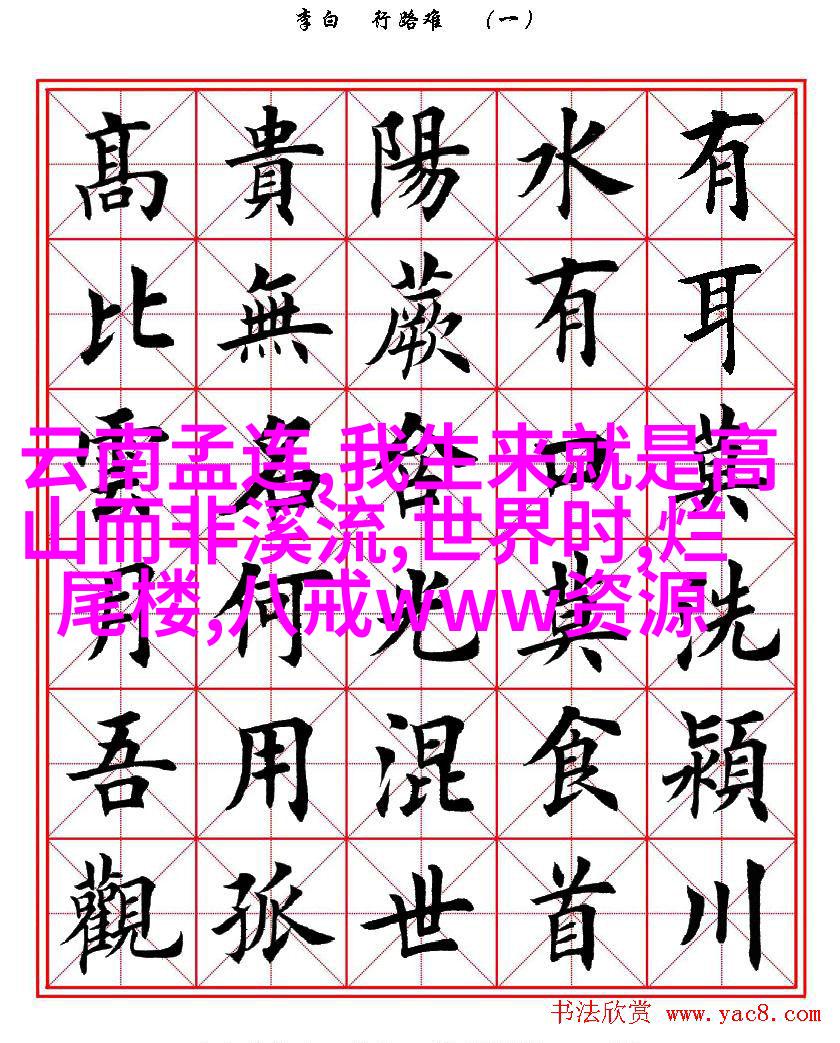 李白 行路难 （一）
有耳莫洗潁川
水有口莫食首
陽蕨含光混世
貴無名何用孤
髙比雲月吾觀
云南孟连,我生来就是高
山而非溪流,世界时,烂
尾楼,八戒www资源
书法欣赏 www.yac8.com